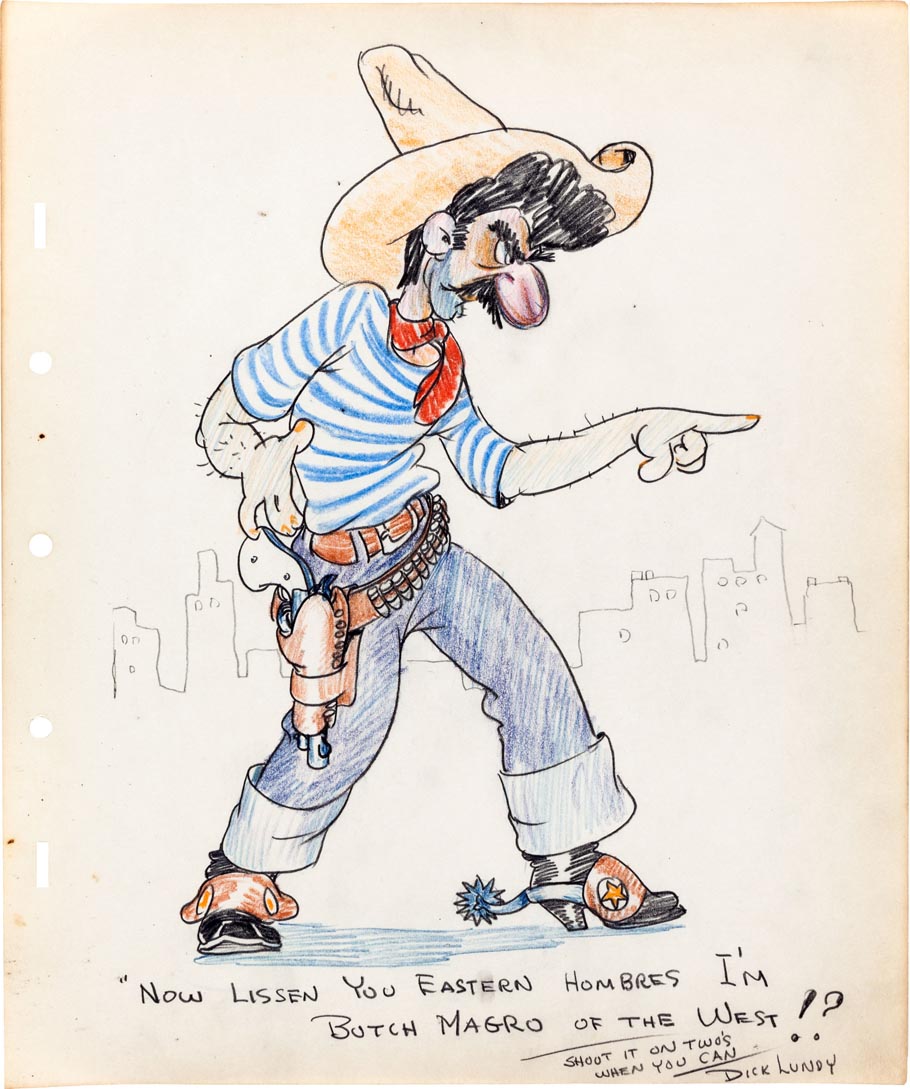 "NOW LISSEN YOU EASTERN HOMBRES I'M
BUTCH MAGRO OF THE WEST !?
SHOOT IT ON TWO'S
WHEN YOU CAN
DICK LUNDY